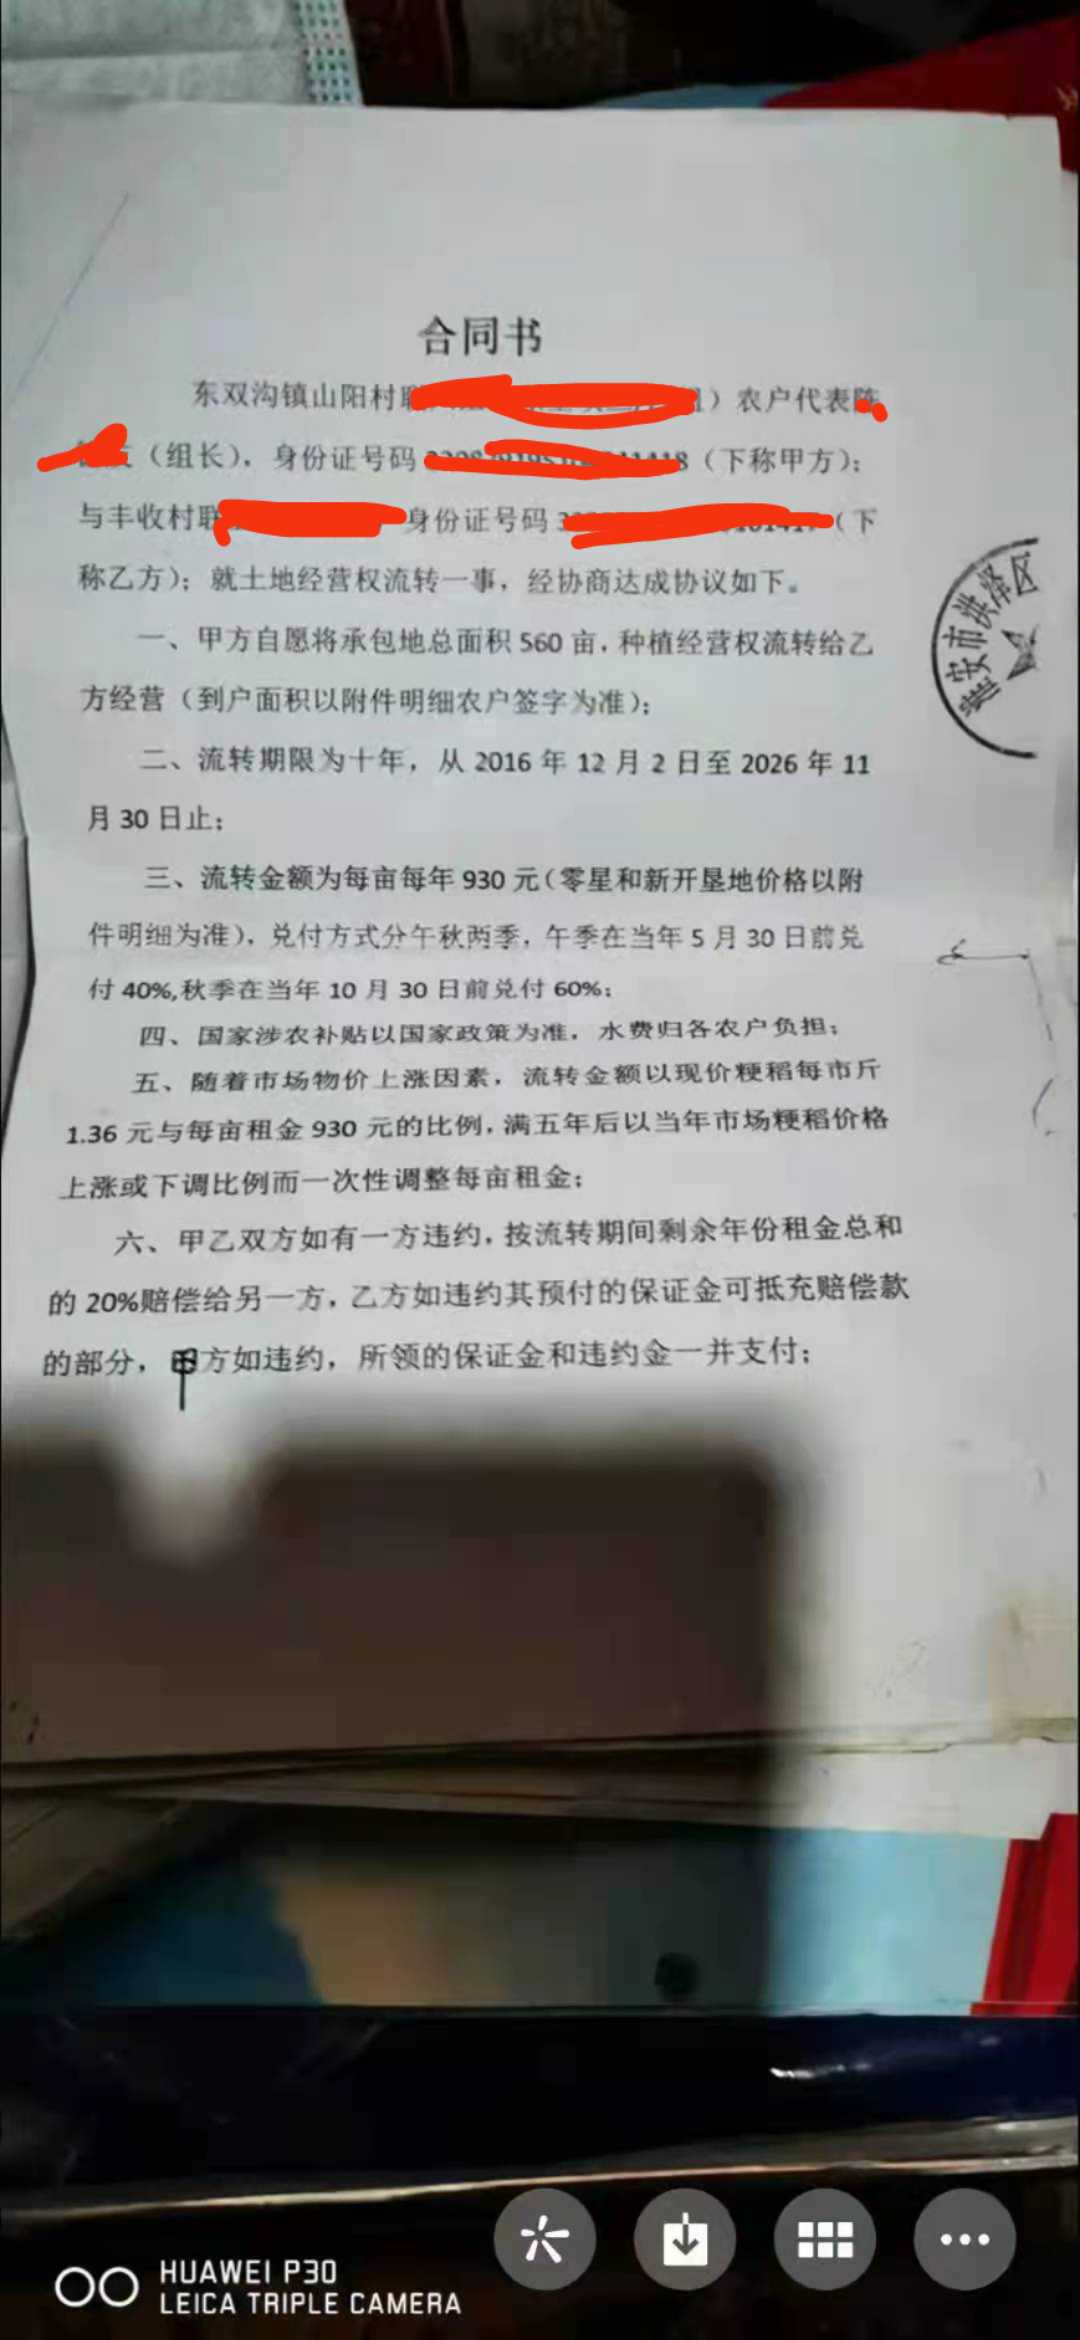 合同书
东双沟镇山阳村联 ）农户代表陈
（组长），身份证号码 （下称甲方）；
与丰收村联 身份证号码 （下
称乙方）；就土地经营权流转一事，经协商达成协议如下。
一、甲方自愿将承包地总面积 560 亩，种植经营权流转给乙
方经营（到户面积以附件明细农户签字为准）；
二、流转期限为十年，从 2016 年 12 月 2 日至 2026 年 11
月 30 日止；
三、流转金额为每亩每年 930 元（零星和新开垦地价格以附
件明细为准），兑付方式分午秋两季，午季在当年 5 月 30 日前兑
付 40%,秋季在当年 10 月 30 日前兑付 60%；
四、国家涉农补贴以国家政策为准，水费归各农户负担；
五、随着市场物价上涨因素，流转金额以现价粳稻每市斤
1.36 元与每亩租金 930 元的比例，满五年后以当年市场粳稻价格
上涨或下调比例而一次性调整每亩租金；
六、甲乙双方如有一方违约，按流转期间剩余年份租金总和
的 20%赔偿给另一方，乙方如违约其预付的保证金可抵充赔偿款
的部分，甲方如违约，所领的保证金和违约金一并支付；
淮安市洪泽区
HUAWEI P30
LEICA TRIPLE CAMERA